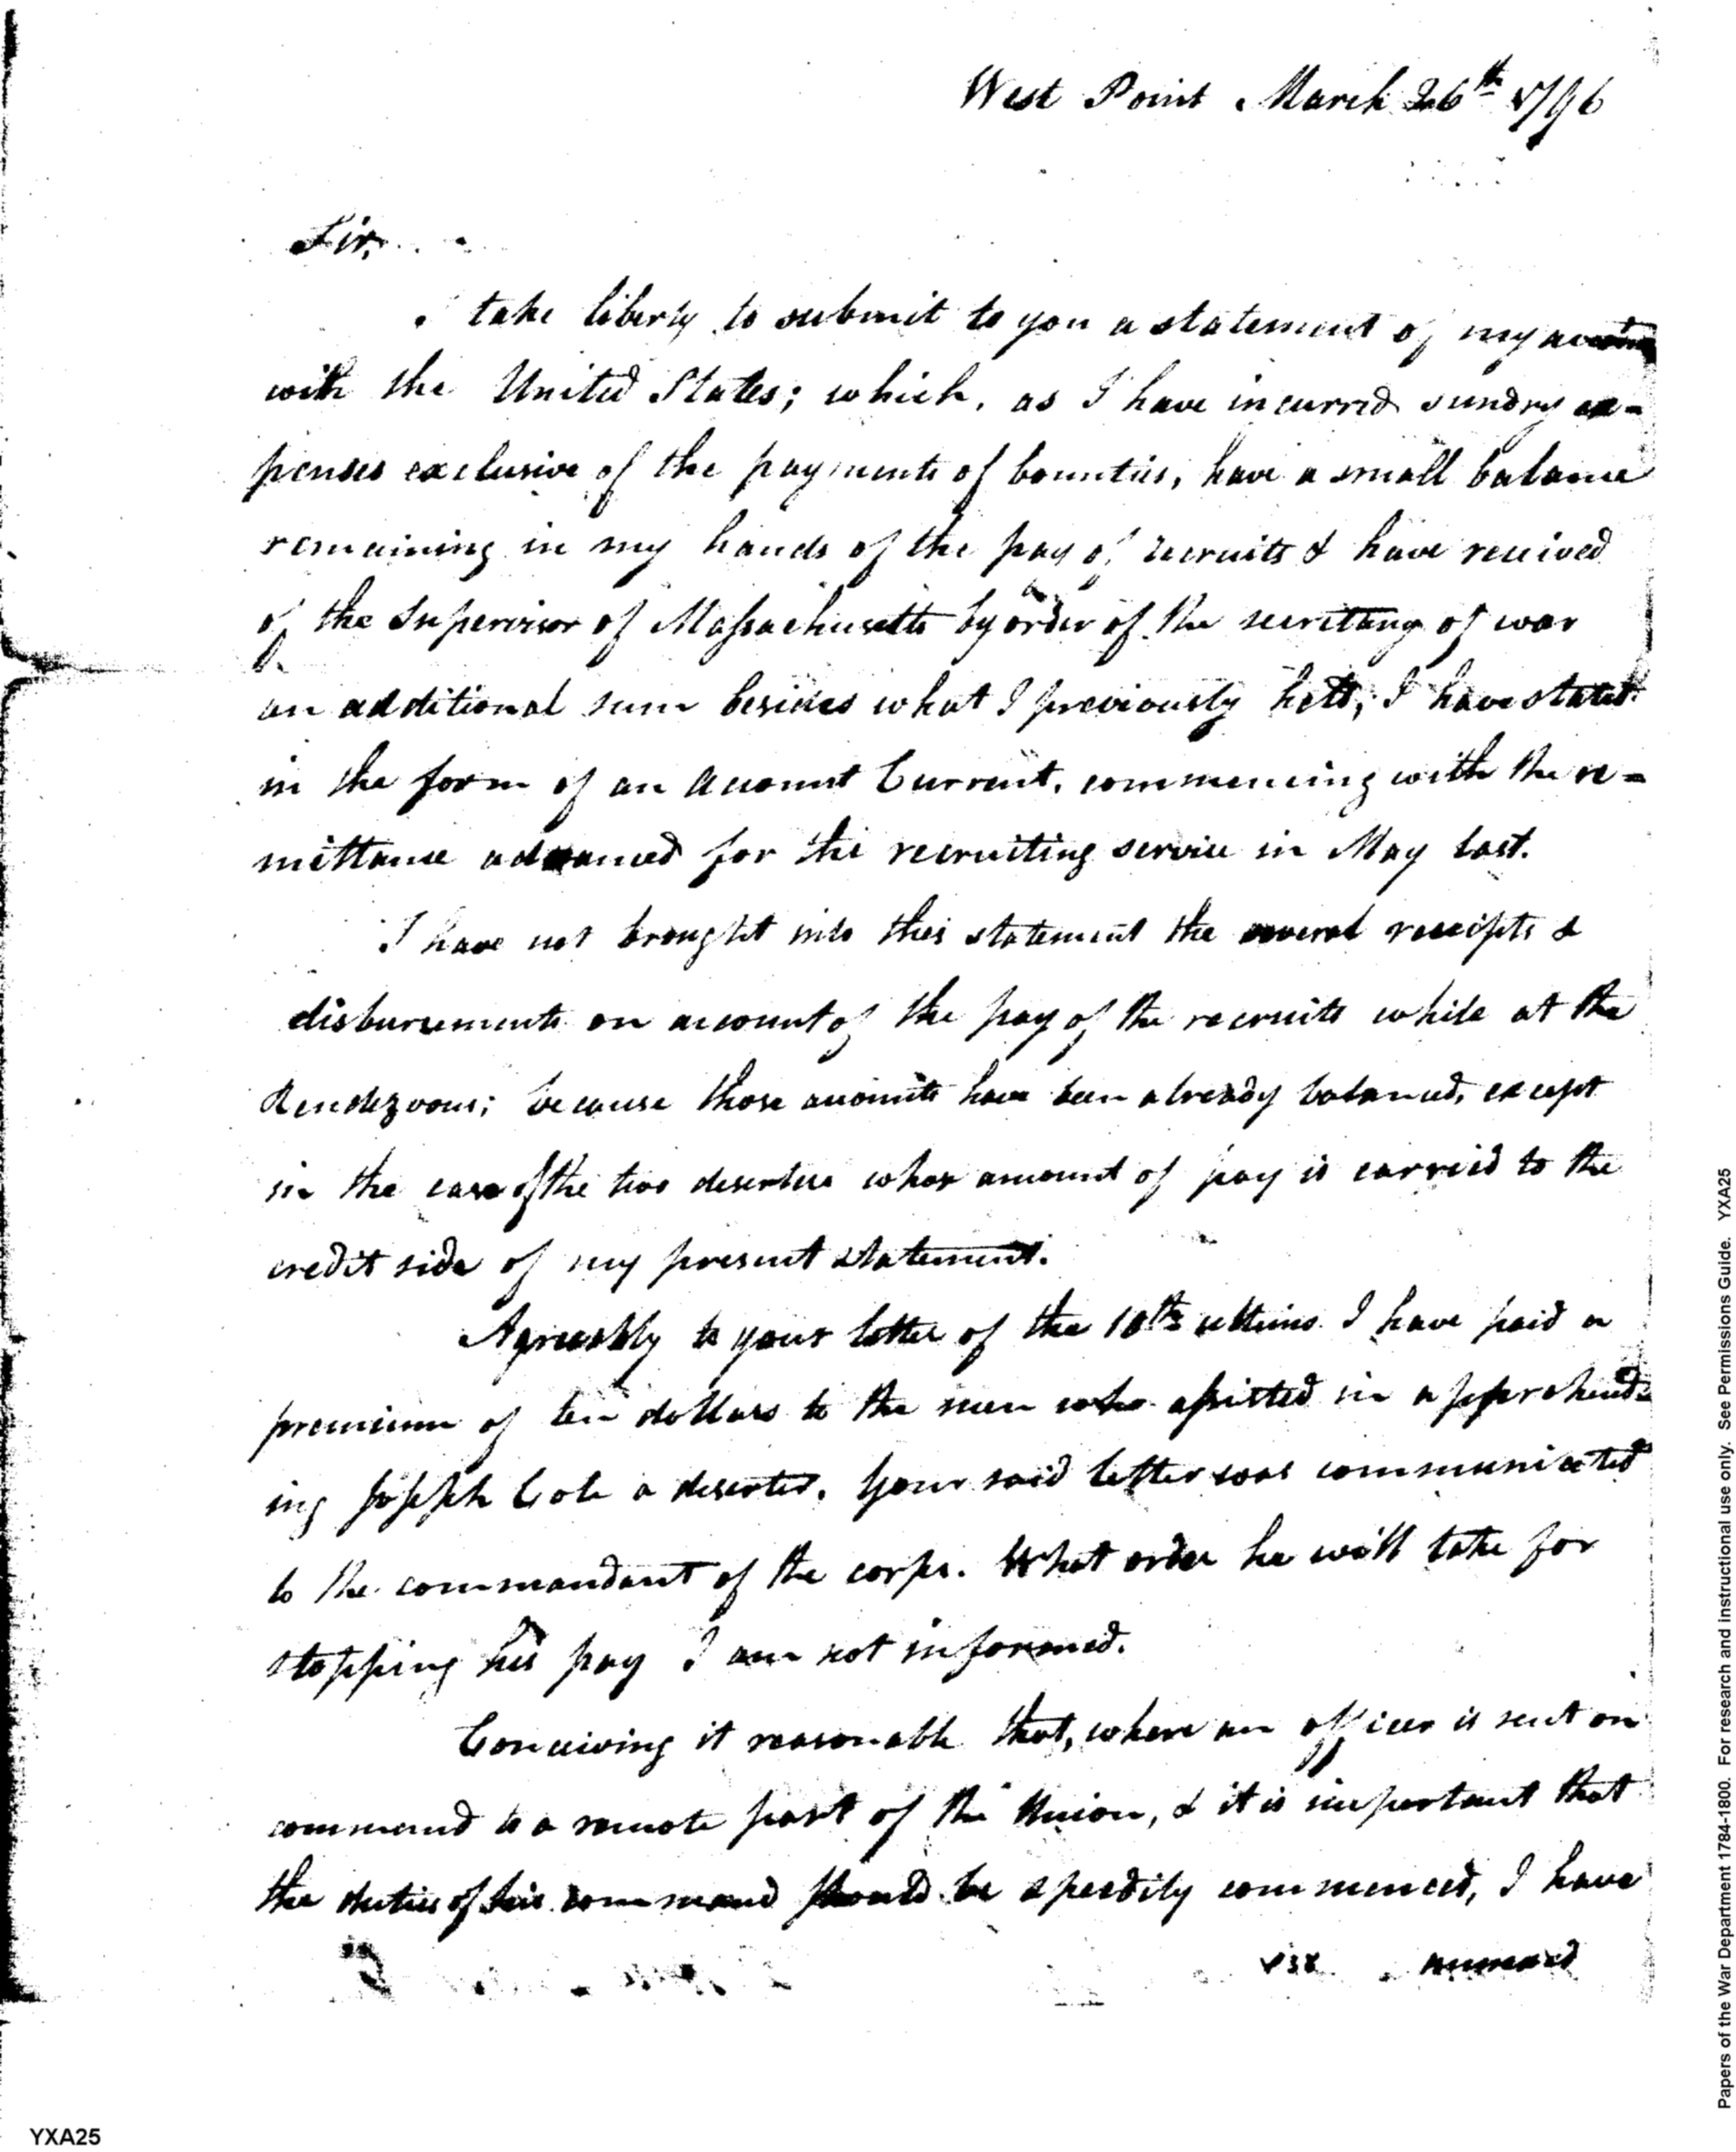 West Point March 26th 1796
Sir,
take liberty to submit to you a statement of my
with the United States; which, as I have incurred sundry ex-
penses exclusive of the payments of bounties, have a small balance
remaining in my hands of the pay of recruits & have received
of the Supervisor of Massachusetts by order of the secretary of war
an additional sum besides what I previously held, I have stated
in the form of an Account Current, commencing with the re-
mittance advanced for the recruiting service in May last.
I have not brought into this statement the several receipts &
disbursements on account of the pay of the recruits while at the
Rendezvous; because those accounts have been already balanced, except
in the case of the two deserters whose amount of pay is carried to the
credit side of my present statement.
Agreeably to your letter of the 10th ultimo I have paid a
premium of ten dollars to the men who assisted in apprehend-
ing Joseph Cole a deserter. Your said letter was communicated
to the commandant of the corps. What order he will take for
stopping his pay I am not informed.
Conceiving it reasonable that, where an officer is sent on
command to a remote part of the Union, & it is important that
the duties of his command should be speedily commenced, I have
annexed
YXA25
Papers of the War Department 1784-1800. For research and instructional use only. See Permissions Guide. YXA25